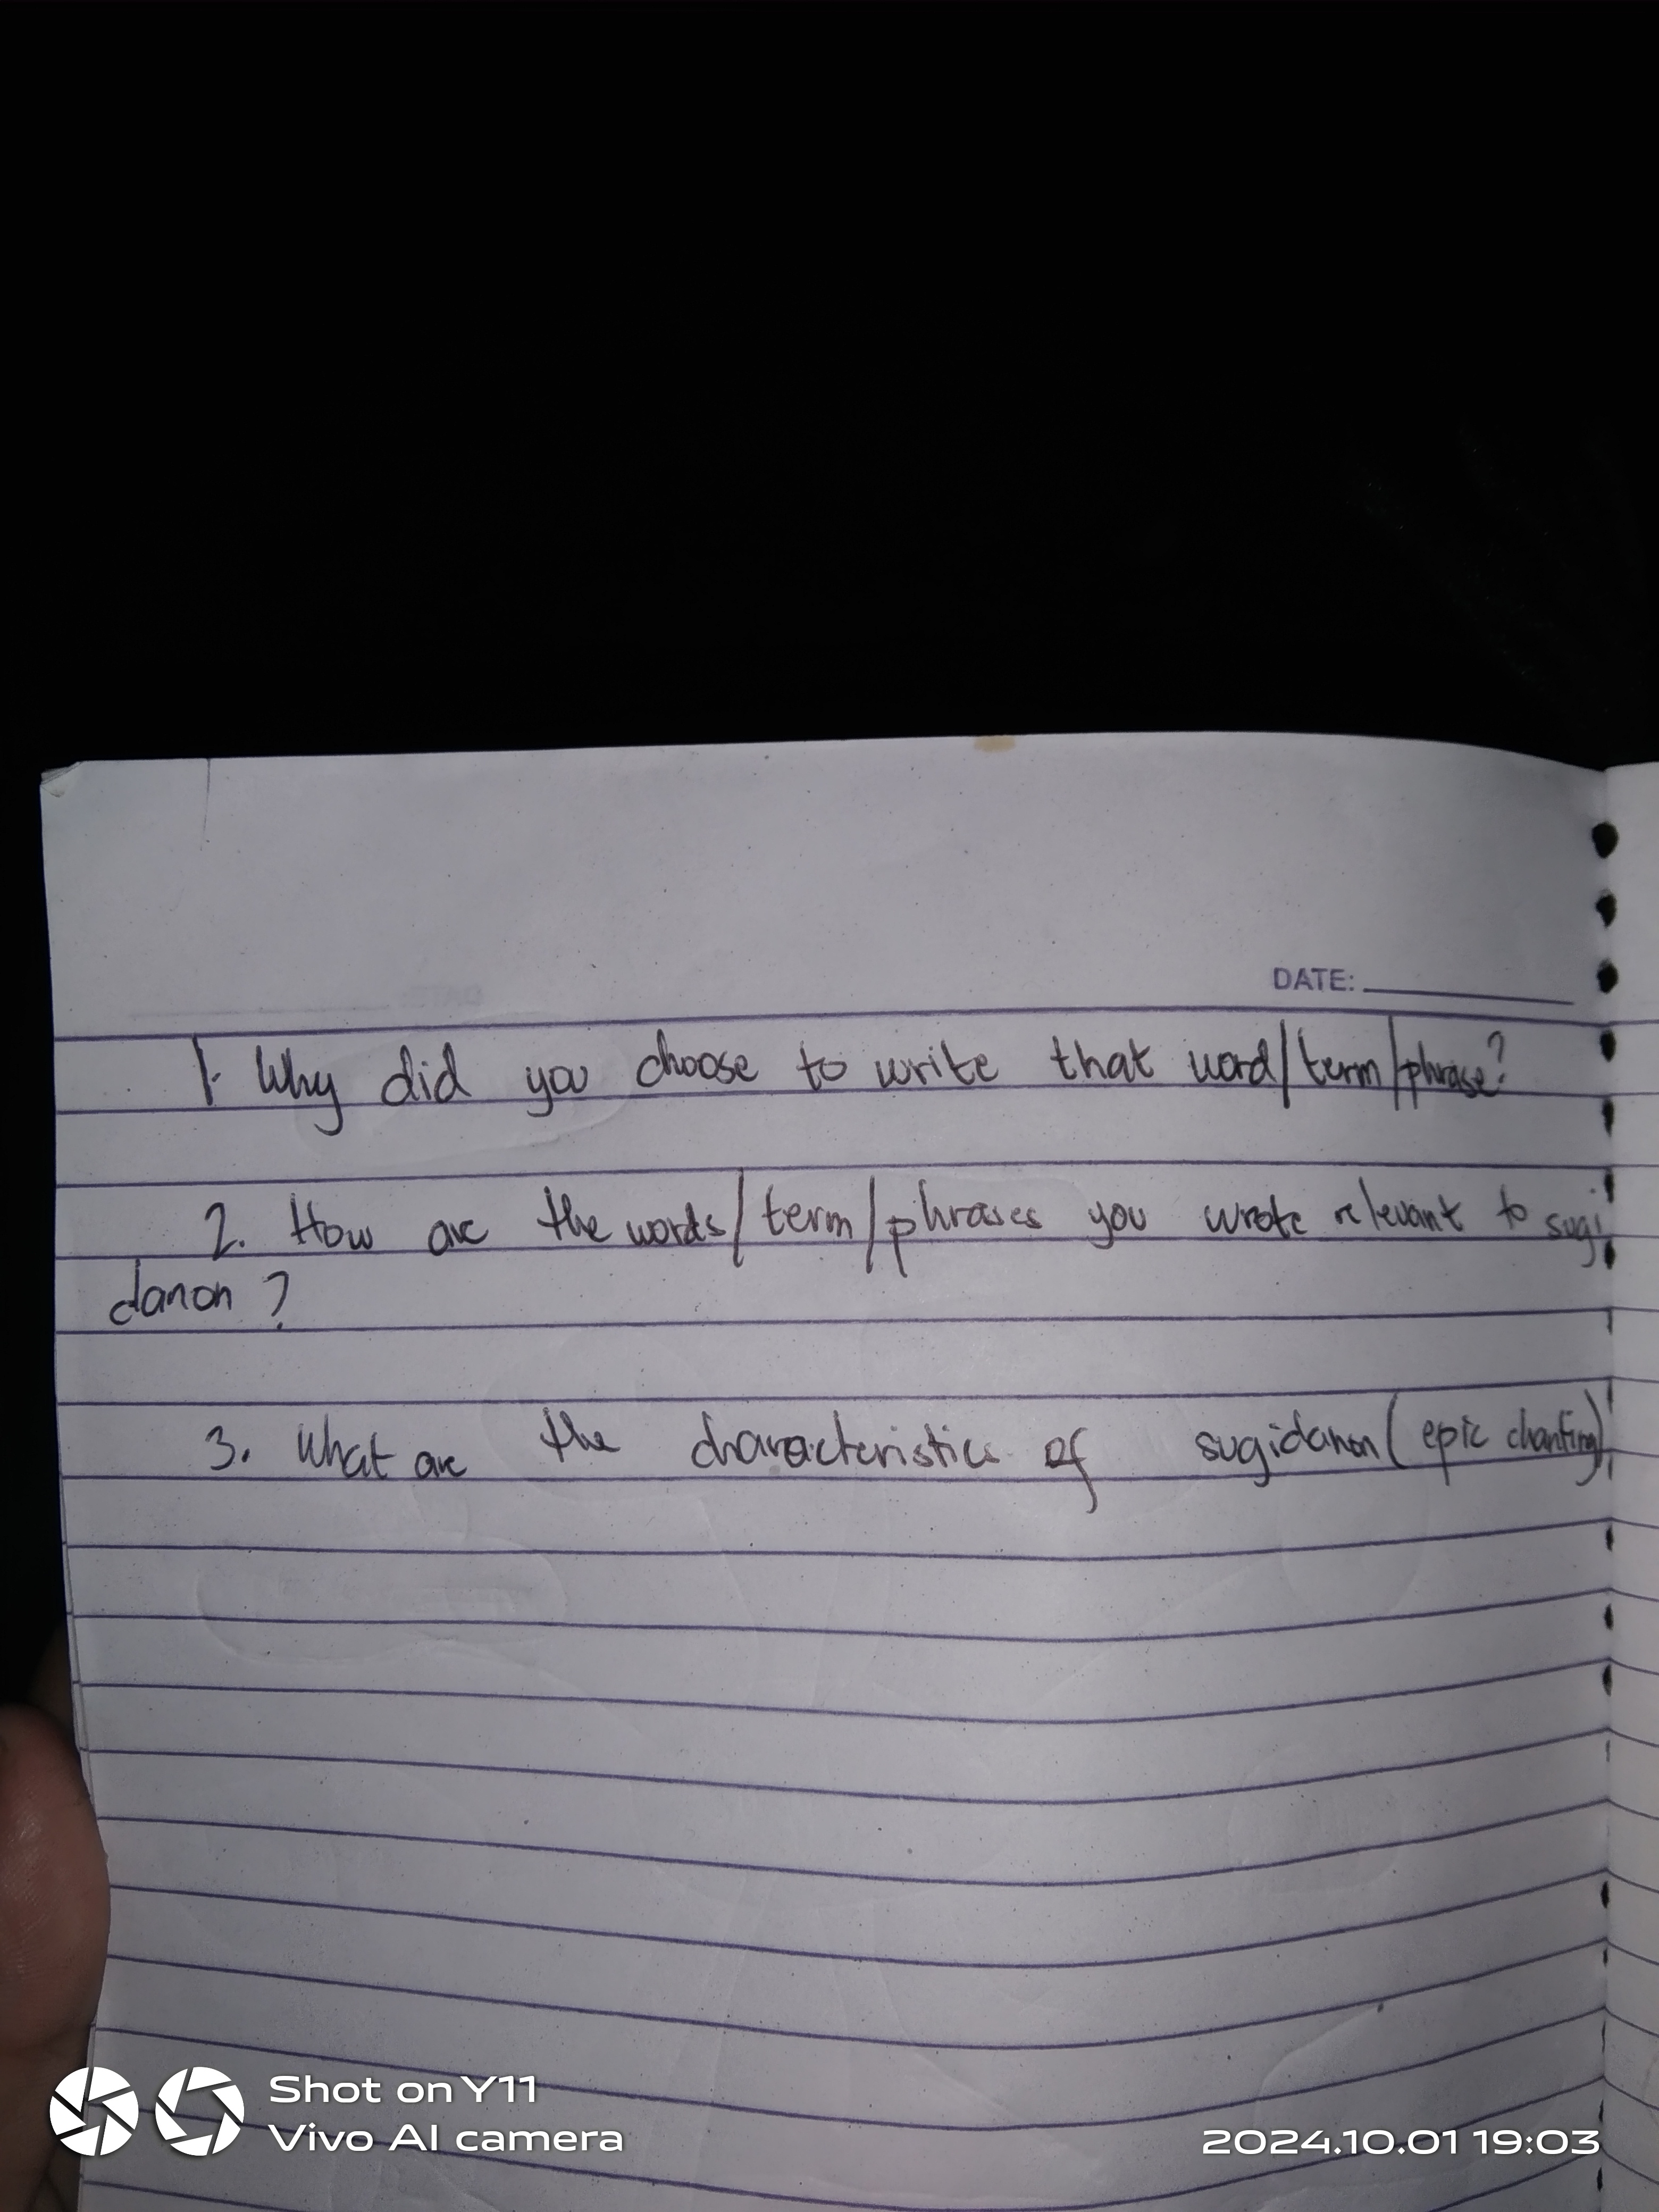 DATE:
1. Why did you choose to write that word/term/phrase?
2. How are the words/term/phrases you wrote relevant to sugi
danon ?
3. What are the characteristics of sugidanon (epic chanting)
Shot on Y11
Vivo AI camera
2024.10.01 19:03